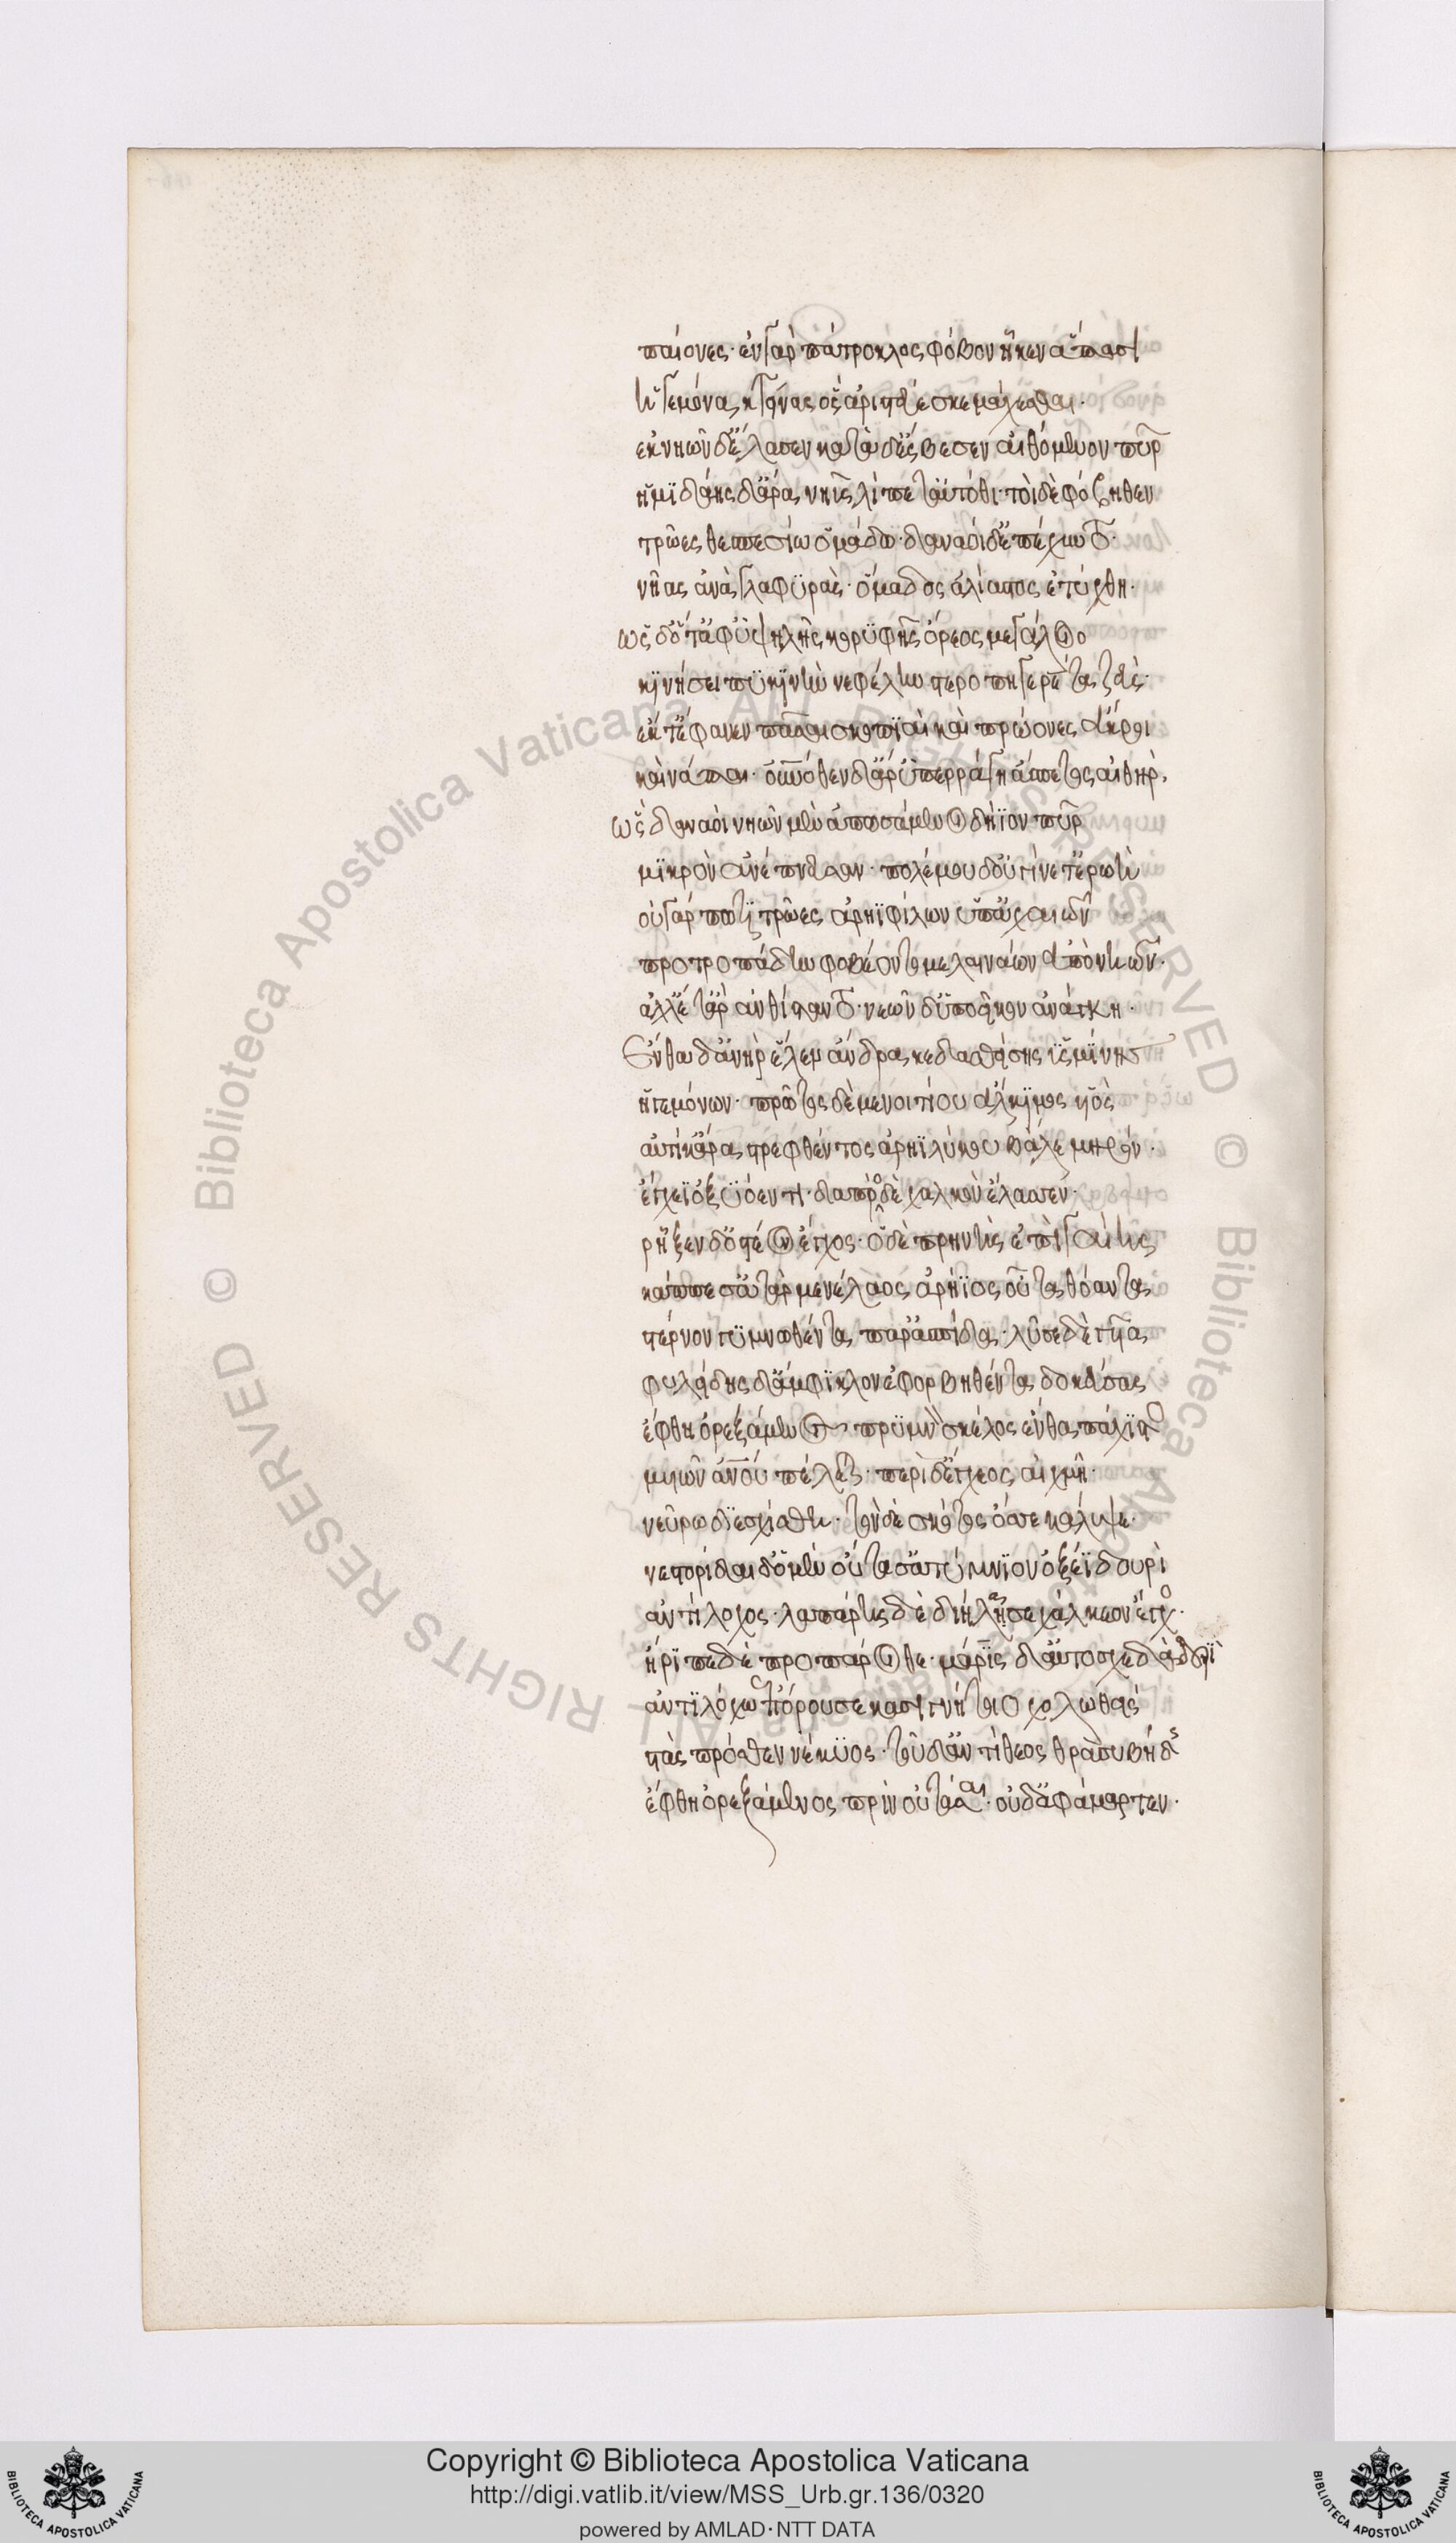 παίονες· ἐν γὰρ πάτροκλος φόβον ἧκεν ἅπασι
ἡγεμόνα κτείνας ὃς ἀριστεύεσκε μάχεσθαι·
ἐκ νηῶν δ' ἔλασεν κατὰ δ' ἔσβεσεν αἰθόμενον πῦρ
ἡμιδαὴς δ' ἄρα νηῦς λίπετ' αὐτόθι· τοὶ δὲ φόβηθεν
τρῶες θεσπεσίω ὁμάδω· δαναοὶ δ' ἐπέχυντο·
νῆας ἀνὰ γλαφυράς· ὅμαδος ἀλίαστος ἐτύχθη·
ὡς δ' ὅτ' ἀφ' ὑψηλῆς κορυφῆς ὄρεος μεγάλοιο
κινήσει πυκινὴν νεφέλην στεροπηγερέτα ζεύς·
ἔκ τ' ἔφανεν πᾶσαι σκοπιαὶ καὶ πρώονες ἄκροι
καὶ νάπαι· οὐρανόθεν δ' ἄρ' ὑπερράγη ἄσπετος αἰθήρ,
ὡς δαναοὶ νηῶν μὲν ἀπωσάμενοι δήϊον πῦρ
μικρὸν ἀνέπνευσαν· πολέμου δ' οὔ τι γίνετ' ἐρωή
οὐ γάρ πώ τι τρῶες ἀρηϊφίλων ὑπ' ἀχαιῶν
προτροπάδην φοβέοντο μελαινάων ἀπὸ νηῶν·
ἀλλ' ἔτ' ἄρ' ἀνθίσταντο· νεῶν δ' ὑπόεικον ἀνάγκη·
Ἔνθα δ' ἀνὴρ ἕλεν ἄνδρα κεδασθείσης ὑσμίνης
ἡγεμόνων· πρῶτος δὲ μενοιτίου ἄλκιμος υἱός
αὐτίκ' ἄρα στρεφθέντος ἀρηϊλύκου βάλε μηρόν·
ἔγχεϊ ὀξυόεντι· διαπρὸ δὲ χαλκὸν ἔλασσεν·
ρῆξεν δ' ὀστέον ἔγχος· ὁ δὲ πρηνὴς ἐπὶ γαίης
κάππεσ' ἀτὰρ μενέλαος ἀρήϊος οὖτα θόαντα
στέρνον γυμνωθέντα παρ' ἀσπίδα· λῦσε δὲ γυῖα
φυλείδης δ' ἄμφικλον ἐφορμηθέντα δοκεύσας
ἔφθη ὀρεξάμενος πρυμνὸν σκέλος ἔνθα πάχιστος
μυιὼν ἀνου πέλει· περὶ δ' ἔγχεος αἰχμῆ·
νεῦρα διεσχίσθη· τὸν δὲ σκότος ὄσσε κάλυψε·
νεστορίδαι δ' ὁ μὲν οὔτασ' ἀτύμνιον ὀξέϊ δουρὶ
ἀντίλοχος· λαπάρης δὲ διήλασε χάλκεον ἔγχος·
ἤριπε δὲ προπάροιθε· μάρις δ' αὐτοσχεδὰ δουρὶ
ἀντιλόχω ἐπόρουσε κασιγνήτοιο χολωθείς
στὰς πρόσθεν νέκυος· τοῦ δ' ἀντίθεος θρασυμήδης
ἔφθη ὀρεξάμενος πρὶν οὐτάσαι· οὐδ' ἀφάμαρτεν·
Copyright © Biblioteca Apostolica Vaticana
http://digi.vatlib.it/view/MSS_Urb.gr.136/0320
powered by AMLAD·NTT DATA